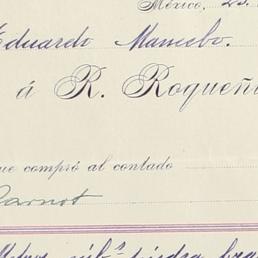 México, 23
Eduardo Mancebo.
á R. Roqueñi
que compró al contado
Carnot
piedra